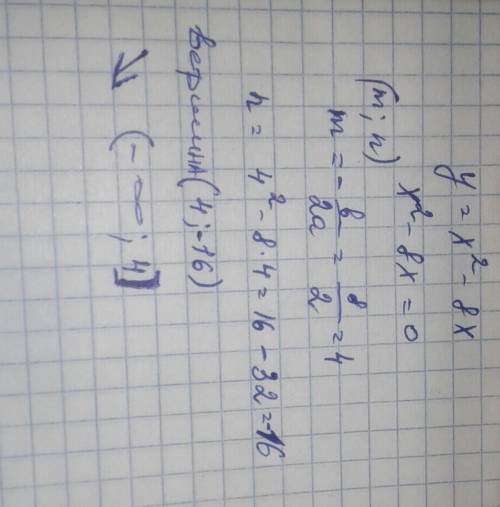 y = x² - 8x
x² - 8x = 0
(m; n)
m = - в/2a = 8/2 = 4
n = 4² - 8·4 = 16 - 32 = -16
вершина (4; -16)
↘ (-∞; 4]